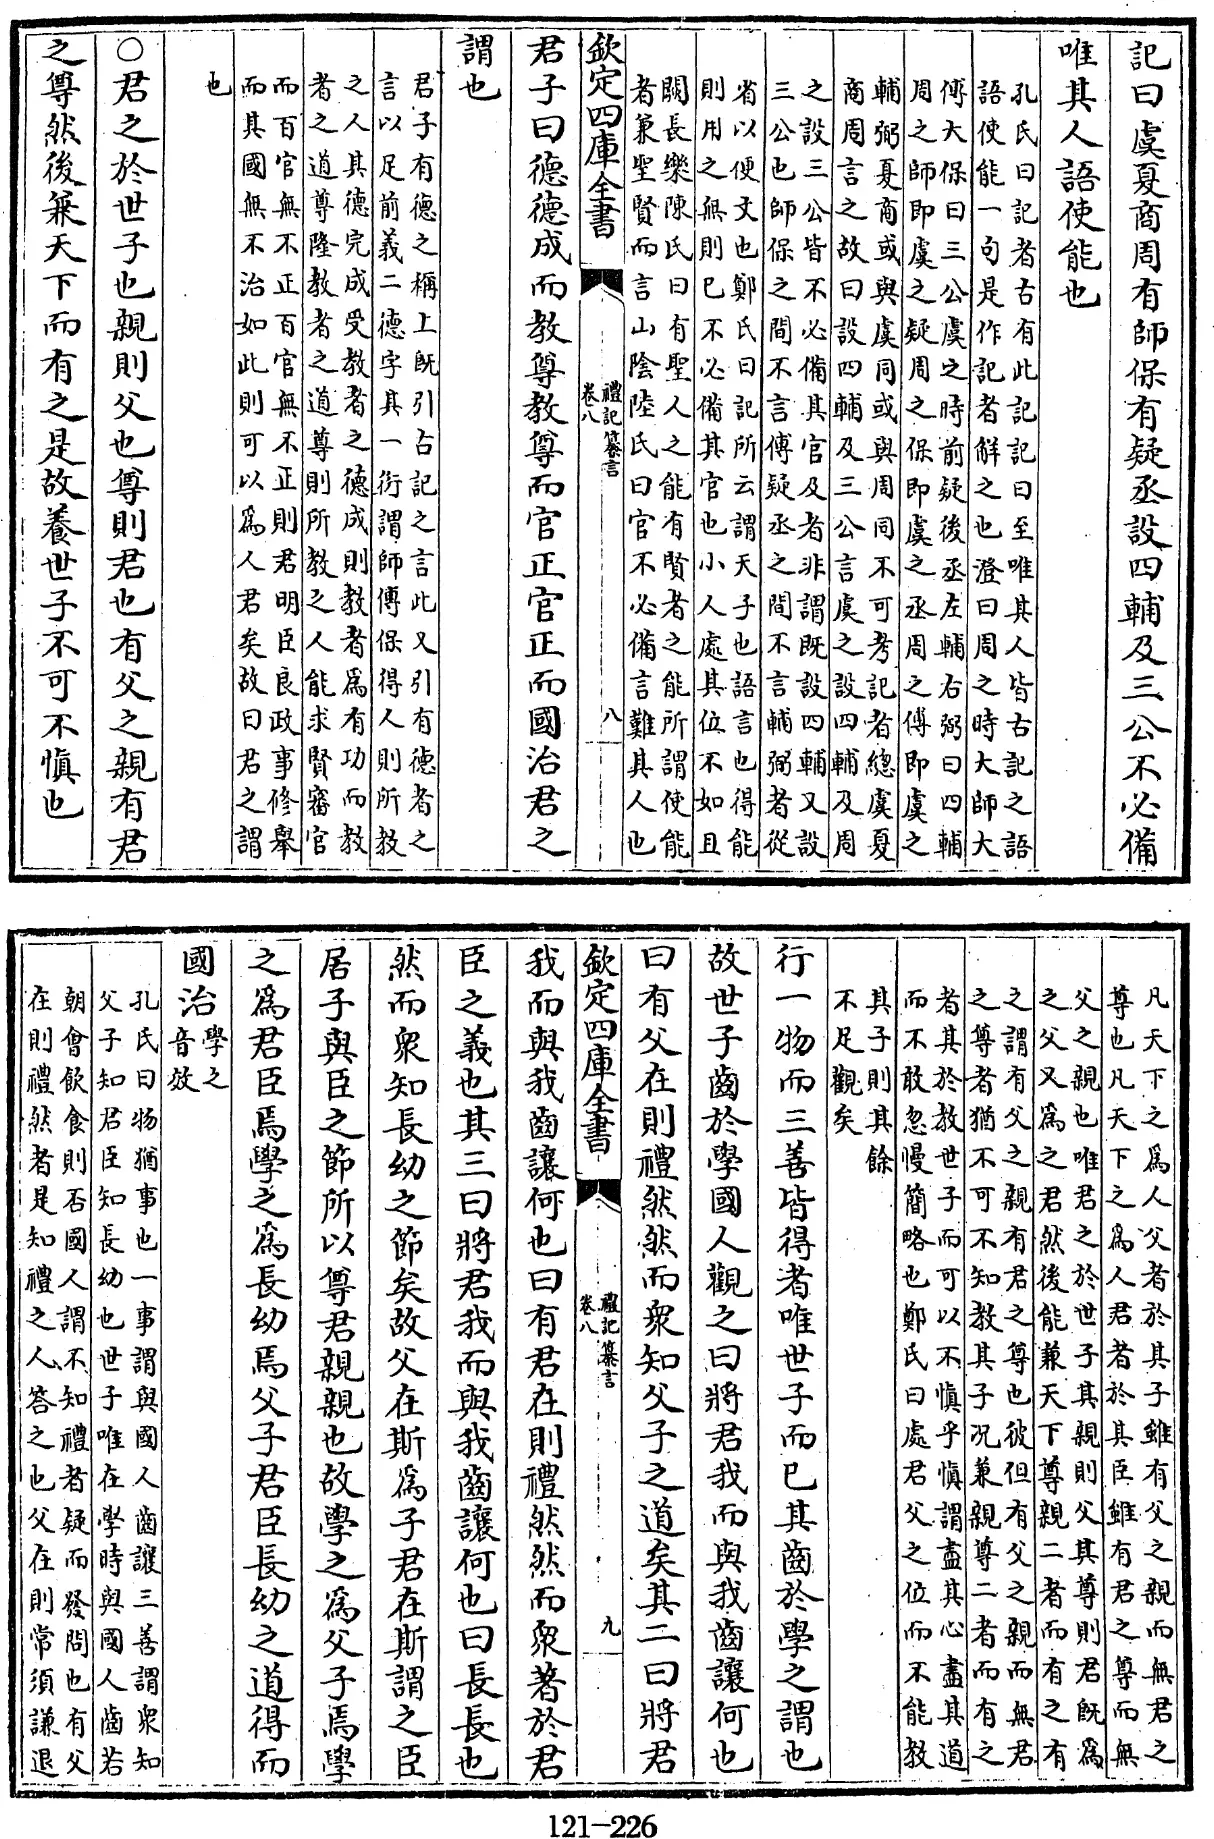 記曰虞夏商周有師保有疑丞設四輔及三公不必備
唯其人語使能也
孔氏曰記者古有此記記曰至唯其人皆古記之語
語使能一句是作記者解之也澄曰周之時大師大
傅大保曰三公虞之時前疑後丞左輔右弼曰四輔
周之師即虞之疑周之保即虞之丞周之傅即虞之
輔弼夏商或與虞同或與周同不可考記者總虞夏
商周言之故曰設四輔及三公言虞之設四輔及周
之設三公皆不必備其官及者非謂既設四輔又設
三公也師保之間不言傅疑丞之間不言輔弼者從
省以便文也鄭氏曰記所云謂天子也語言也得能
則用之無則已不必備其官也小人處其位不如且
闕長樂陳氏曰有聖人之能有賢者之能所謂使能
者兼聖賢而言山陰陸氏曰官不必備言難其人也
欽定四庫全書
禮記纂言
卷八
八
君子曰德德成而教尊教尊而官正官正而國治君之
謂也
君子有德之稱上既引古記之言此又引有德者之
言以足前義二德字其一衍謂師傅保得人則所教
之人其德完成受教者之德成則教者爲有功而教
者之道尊隆教者之道尊則所教之人能求賢審官
而百官無不正百官無不正則君明臣良政事修舉
而其國無不治如此則可以爲人君矣故曰君之謂
也
○君之於世子也親則父也尊則君也有父之親有君
之尊然後兼天下而有之是故養世子不可不慎也
凡天下之爲人父者於其子雖有父之親而無君之
尊也凡天下之爲人君者於其臣雖有君之尊而無
父之親也唯君之於世子其親則父其尊則君既爲
之父又爲之君然後能兼天下尊親二者而有之有
之謂有父之親有君之尊也彼但有父之親而無君
之尊者猶不可不知教其子況兼親尊二者而有之
者其於教世子而可以不慎乎慎謂盡其心盡其道
而不敢忽慢簡略也鄭氏曰處君父之位而不能教
其子則其餘
不足觀矣
行一物而三善皆得者唯世子而已其齒於學之謂也
故世子齒於學國人觀之曰將君我而與我齒讓何也
曰有父在則禮然然而衆知父子之道矣其二曰將君
欽定四庫全書
禮記纂言
卷八
九
我而與我齒讓何也曰有君在則禮然然而衆著於君
臣之義也其三曰將君我而與我齒讓何也曰長長也
然而衆知長幼之節矣故父在斯爲子君在斯謂之臣
居子與臣之節所以尊君親親也故學之爲父子焉學
之爲君臣焉學之爲長幼焉父子君臣長幼之道得而
國治
學之
音效
孔氏曰物猶事也一事謂與國人齒讓三善謂衆知
父子知君臣知長幼也世子唯在學時與國人齒若
朝會飲食則否國人謂不知禮者疑而發問也有父
在則禮然者是知禮之人答之也父在則常須謙退
121-226